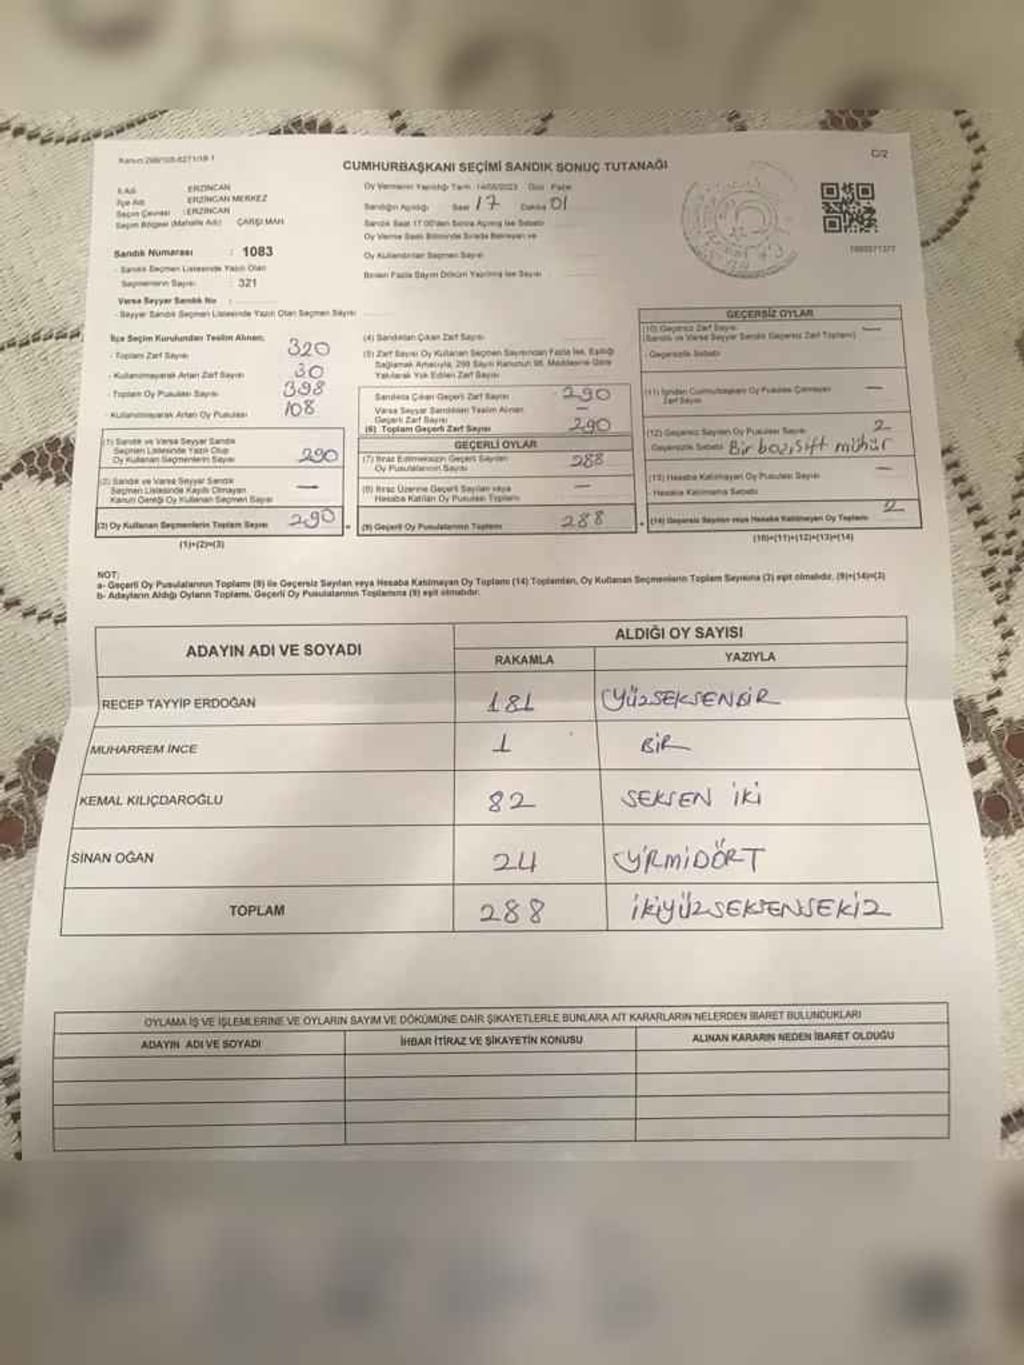 CUMHURBAŞKANI SEÇİMİ SANDIK SONUÇ TUTANAĞI
C/2
İl Adı ERZİNCAN
İlçe Adı ERZİNCAN MERKEZ
Seçim Çevresi : ERZİNCAN
Seçim Bölgesi (Mahalle Adı) ÇARŞI MAH
Sandık Numarası : 1083
- Sandık Seçmen Listesinde Yazılı Olan
Seçmenlerin Sayısı : 321
Varsa Seyyar Sandık No :
- Seyyar Sandık Seçmen Listesinde Yazılı Olan Seçmen Sayısı
Oy Vermenin Yapıldığı Tarih : 14/05/2023 Gün : Pazar
Sandığın Açıldığı Saat 17 Dakika 01
Sandık Saat 17:00'den Sonra Açılmış İse Sebebi
Oy Verme Saati Bitiminde Sırada Bekleyen ve
Oy Kullandırılan Seçmen Sayısı
Birden Fazla Sayım Döküm Yapılmış İse Sayısı
İlçe Seçim Kurulundan Teslim Alınan;
- Toplam Zarf Sayısı 320
- Kullanılmayarak Artan Zarf Sayısı 30
- Toplam Oy Pusulası Sayısı 398
- Kullanılmayarak Artan Oy Pusulası 108
(1) Sandık ve Varsa Seyyar Sandık
Seçmen Listesinde Yazılı Olup
Oy Kullanan Seçmenlerin Sayısı 290
(2) Sandık ve Varsa Seyyar Sandık
Seçmen Listesinde Kayıtlı Olmayan
Kanun Gereği Oy Kullanan Seçmen Sayısı —
(3) Oy Kullanan Seçmenlerin Toplam Sayısı 290
(1)+(2)=(3)
(4) Sandıktan Çıkan Zarf Sayısı
(5) Zarf Sayısı Oy Kullanan Seçmen Sayısından Fazla İse, Eşitliği
Sağlamak Amacıyla, 298 Sayılı Kanunun 98. Maddesine Göre
Yakılarak Yok Edilen Zarf Sayısı
Sandıkta Çıkan Geçerli Zarf Sayısı 290
Varsa Seyyar Sandıktan Teslim Alınan
Geçerli Zarf Sayısı —
(6) Toplam Geçerli Zarf Sayısı 290
GEÇERLİ OYLAR
(7) İtiraz Edilmeksizin Geçerli Sayılan
Oy Pusulalarının Sayısı 288
(8) İtiraz Üzerine Geçerli Sayılan veya
Hesaba Katılan Oy Pusulası Toplamı —
(9) Geçerli Oy Pusulalarının Toplamı 288
GEÇERSİZ OYLAR
(10) Geçersiz Zarf Sayısı —
(Sandık ve Varsa Seyyar Sandık Geçersiz Zarf Toplamı)
- Geçersizlik Sebebi
(11) İçinden Cumhurbaşkanı Oy Pusulası Çıkmayan
Zarf Sayısı —
(12) Geçersiz Sayılan Oy Pusulası Sayısı 2
Geçersizlik Sebebi Bir boz, çift mühür
(13) Hesaba Katılmayan Oy Pusulası Sayısı —
Hesaba Katılmama Sebebi
(14) Geçersiz Sayılan veya Hesaba Katılmayan Oy Toplamı 2
(10)+(11)+(12)+(13)=(14)
NOT:
a- Geçerli Oy Pusulalarının Toplamı (9) ile Geçersiz Sayılan veya Hesaba Katılmayan Oy Toplamı (14) Toplamları, Oy Kullanan Seçmenlerin Toplam Sayısına (3) eşit olmalıdır. (9)+(14)=(3)
b- Adayların Aldığı Oyların Toplamı, Geçerli Oy Pusulalarının Toplamına (9) eşit olmalıdır.
ADAYIN ADI VE SOYADI ALDIĞI OY SAYISI
RAKAMLA YAZIYLA
RECEP TAYYİP ERDOĞAN 181 YÜZSEKSENBİR
MUHARREM İNCE 1 BİR
KEMAL KILIÇDAROĞLU 82 SEKSEN İKİ
SİNAN OĞAN 24 YİRMİDÖRT
TOPLAM 288 İKİYÜZSEKSENSEKİZ
OYLAMA İŞ VE İŞLEMLERİNE VE OYLARIN SAYIM VE DÖKÜMÜNE DAİR ŞİKAYETLERLE BUNLARA AİT KARARLARIN NELERDEN İBARET BULUNDUKLARI
ADAYIN ADI VE SOYADI İHBAR İTİRAZ VE ŞİKAYETİN KONUSU ALINAN KARARIN NEDEN İBARET OLDUĞU